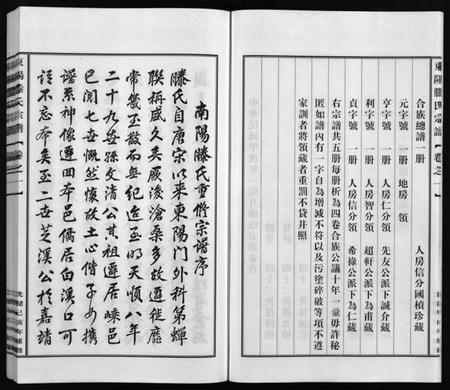 東陽滕氏宗譜
卷之一
合族總譜一冊 人房信分國楨珍藏
元字號 一冊 地房 領
亨字號 一冊 人房仁分領 先友公派下誠介藏
利字號 一冊 人房智分領 超軒公派下為甫藏
貞字號 一冊 人房信分領 希祿公派下為仁藏
右宗譜共五冊每冊析為四卷合族公議十年一彙毋許秘
匿如譜內有一字自為增減不符以及污塗碎破等項不遵
家訓者將領藏者重罰不貸幷照
南陽滕氏重修宗譜序
滕氏自唐宗以來東陽門外科第蟬
聯稱盛久矣厥後滄桑多故遷徙靡
常幾至散而無紀迄至明天順八年
二十九世孫文清公其祖遷居嵊邑
已閱七世慨然懷故土心偕子女攜
譜系神像遷回本邑僑居白溪口可
謂不忘本矣至二世芝溪公於嘉靖
東陽滕氏宗譜
卷之一